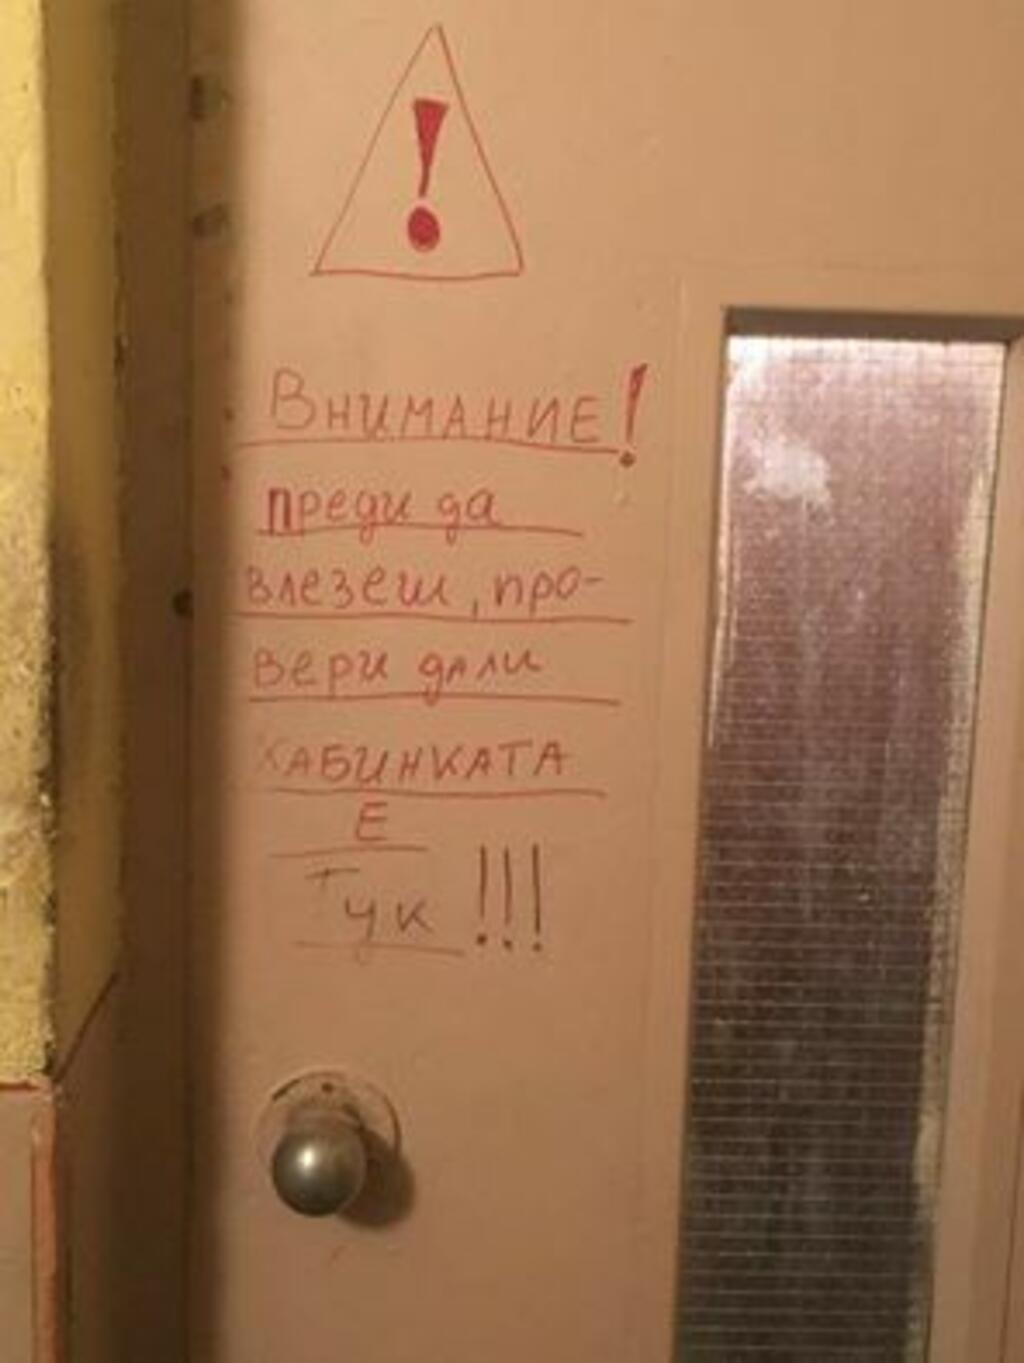 !
Внимание!
преди да
влезеш, про-
вери дали
КАБИНКАТА
Е
Тук !!!